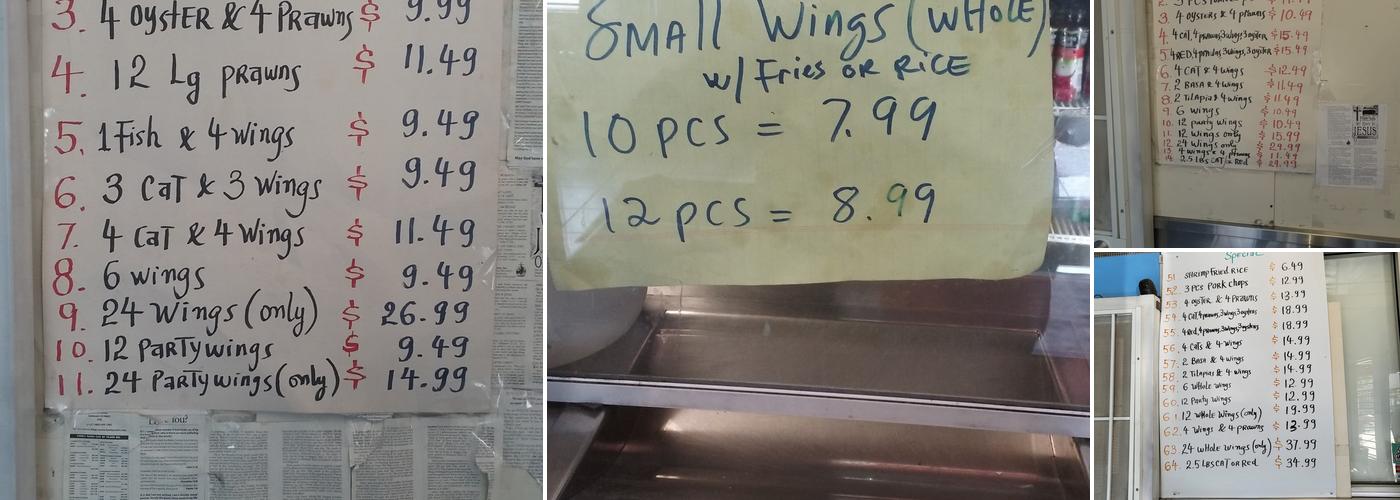 3. 4 OYSTER & 4 PRAWNS $ 9.99
4. 12 Lg PRAWNS $ 11.49
5. 1 Fish & 4 wings $ 9.49
6. 3 CaT & 3 Wings $ 9.49
7. 4 CaT & 4 Wings $ 11.49
8. 6 wings $ 9.49
9. 24 Wings (only) $ 26.99
10. 12 PaRTy wings $ 9.49
11. 24 PaRTy wings (only) $ 14.99
SMALL Wings (WHOLE)
w/ Fries OR RICE
10 PCS = 7.99
12 PCS = 8.99
3. 4 OYSTERS & 4 PRAWNS $ 10.49
4. 4 CAT, 4 prawns, 3 wings, 3 oyster $ 15.49
5. 4 RED, 4 prawns, 3 wings, 3 oyster $ 15.49
6. 4 CAT & 4 wings $ 12.49
7. 2 BASA & 4 wings $ 11.49
8. 2 Tilapia & 4 wings $ 11.49
9. 6 wings $ 10.49
10. 12 party wings $ 10.49
11. 12 wings only $ 15.99
12. 24 wings only $ 29.99
13. 4 wings & 4 prawns $ 11.49
14. 2.5 Lbs CAT or Red
JESUS
Special
51. SHRIMP FRIED RICE $ 6.49
52. 3 PCS PORK Chops $ 12.99
53. 4 oyster & 4 PRAWNS $ 13.99
54. 4 Cat, 4 prawns, 3 wings, 3 oysters $ 18.99
55. 4 Red, 4 prawns, 3 wings, 3 oysters $ 18.99
56. 4 Cats & 4 wings $ 14.99
57. 2 Basa & 4 wings $ 14.99
58. 2 Tilapias & 4 wings $ 14.99
59. 6 Whole wings $ 12.99
60. 12 Party Wings $ 12.99
61. 12 WHole Wings (only) $ 19.99
62. 4 Wings & 4 prawns $ 13.99
63. 24 whole wings (only) $ 37.99
64. 2.5 Lbs CAT OR Red $ 34.99